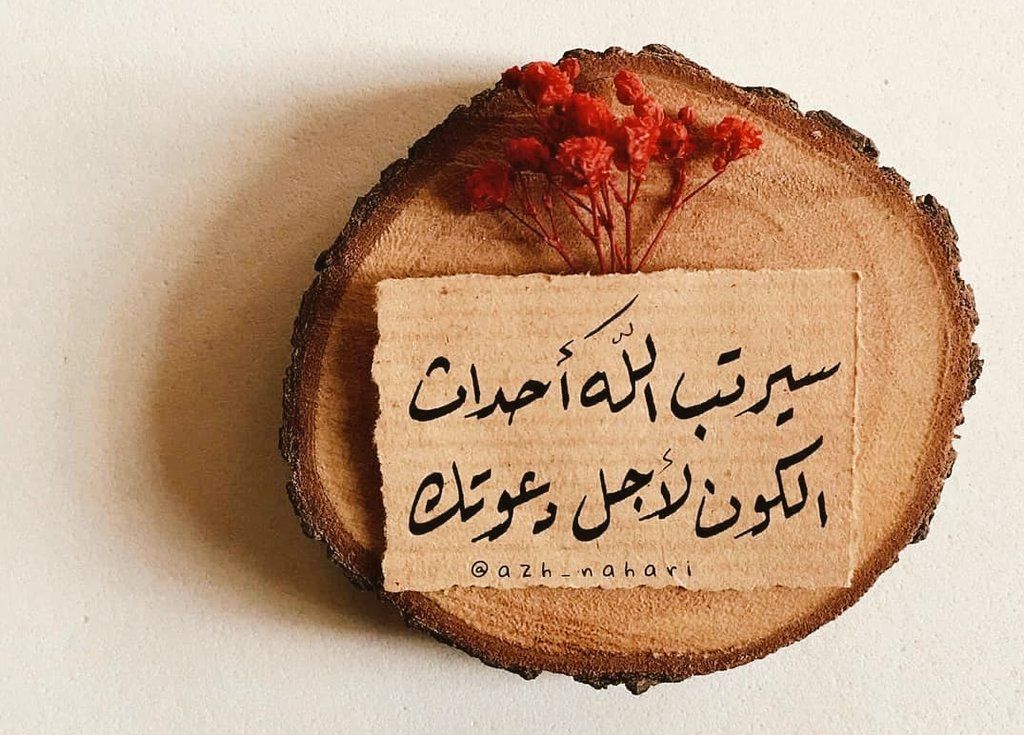 سيرتب اللّه أحداث
الكون لأجل دعوتك
@azh_nahari